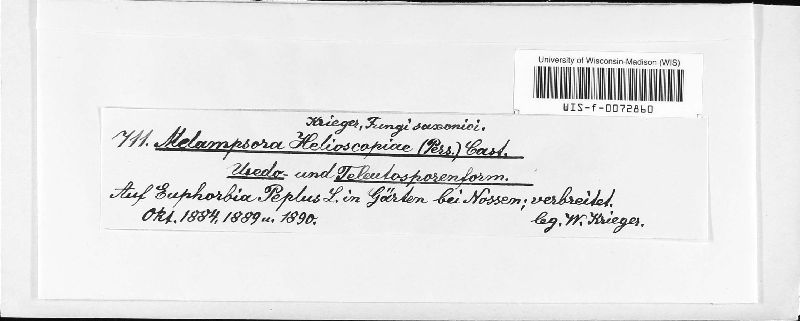 University of Wisconsin-Madison (WIS)
WIS-f-0072860
Krieger, Fungi saxonici.
711. Melampsora Helioscopiae (Pers.) Cast.
Uredo- und Teleutosporenform.
Auf Euphorbia Peplus L. in Gärten bei Nossen; verbreitet.
Okt. 1884, 1889 u. 1890. leg. W. Krieger.